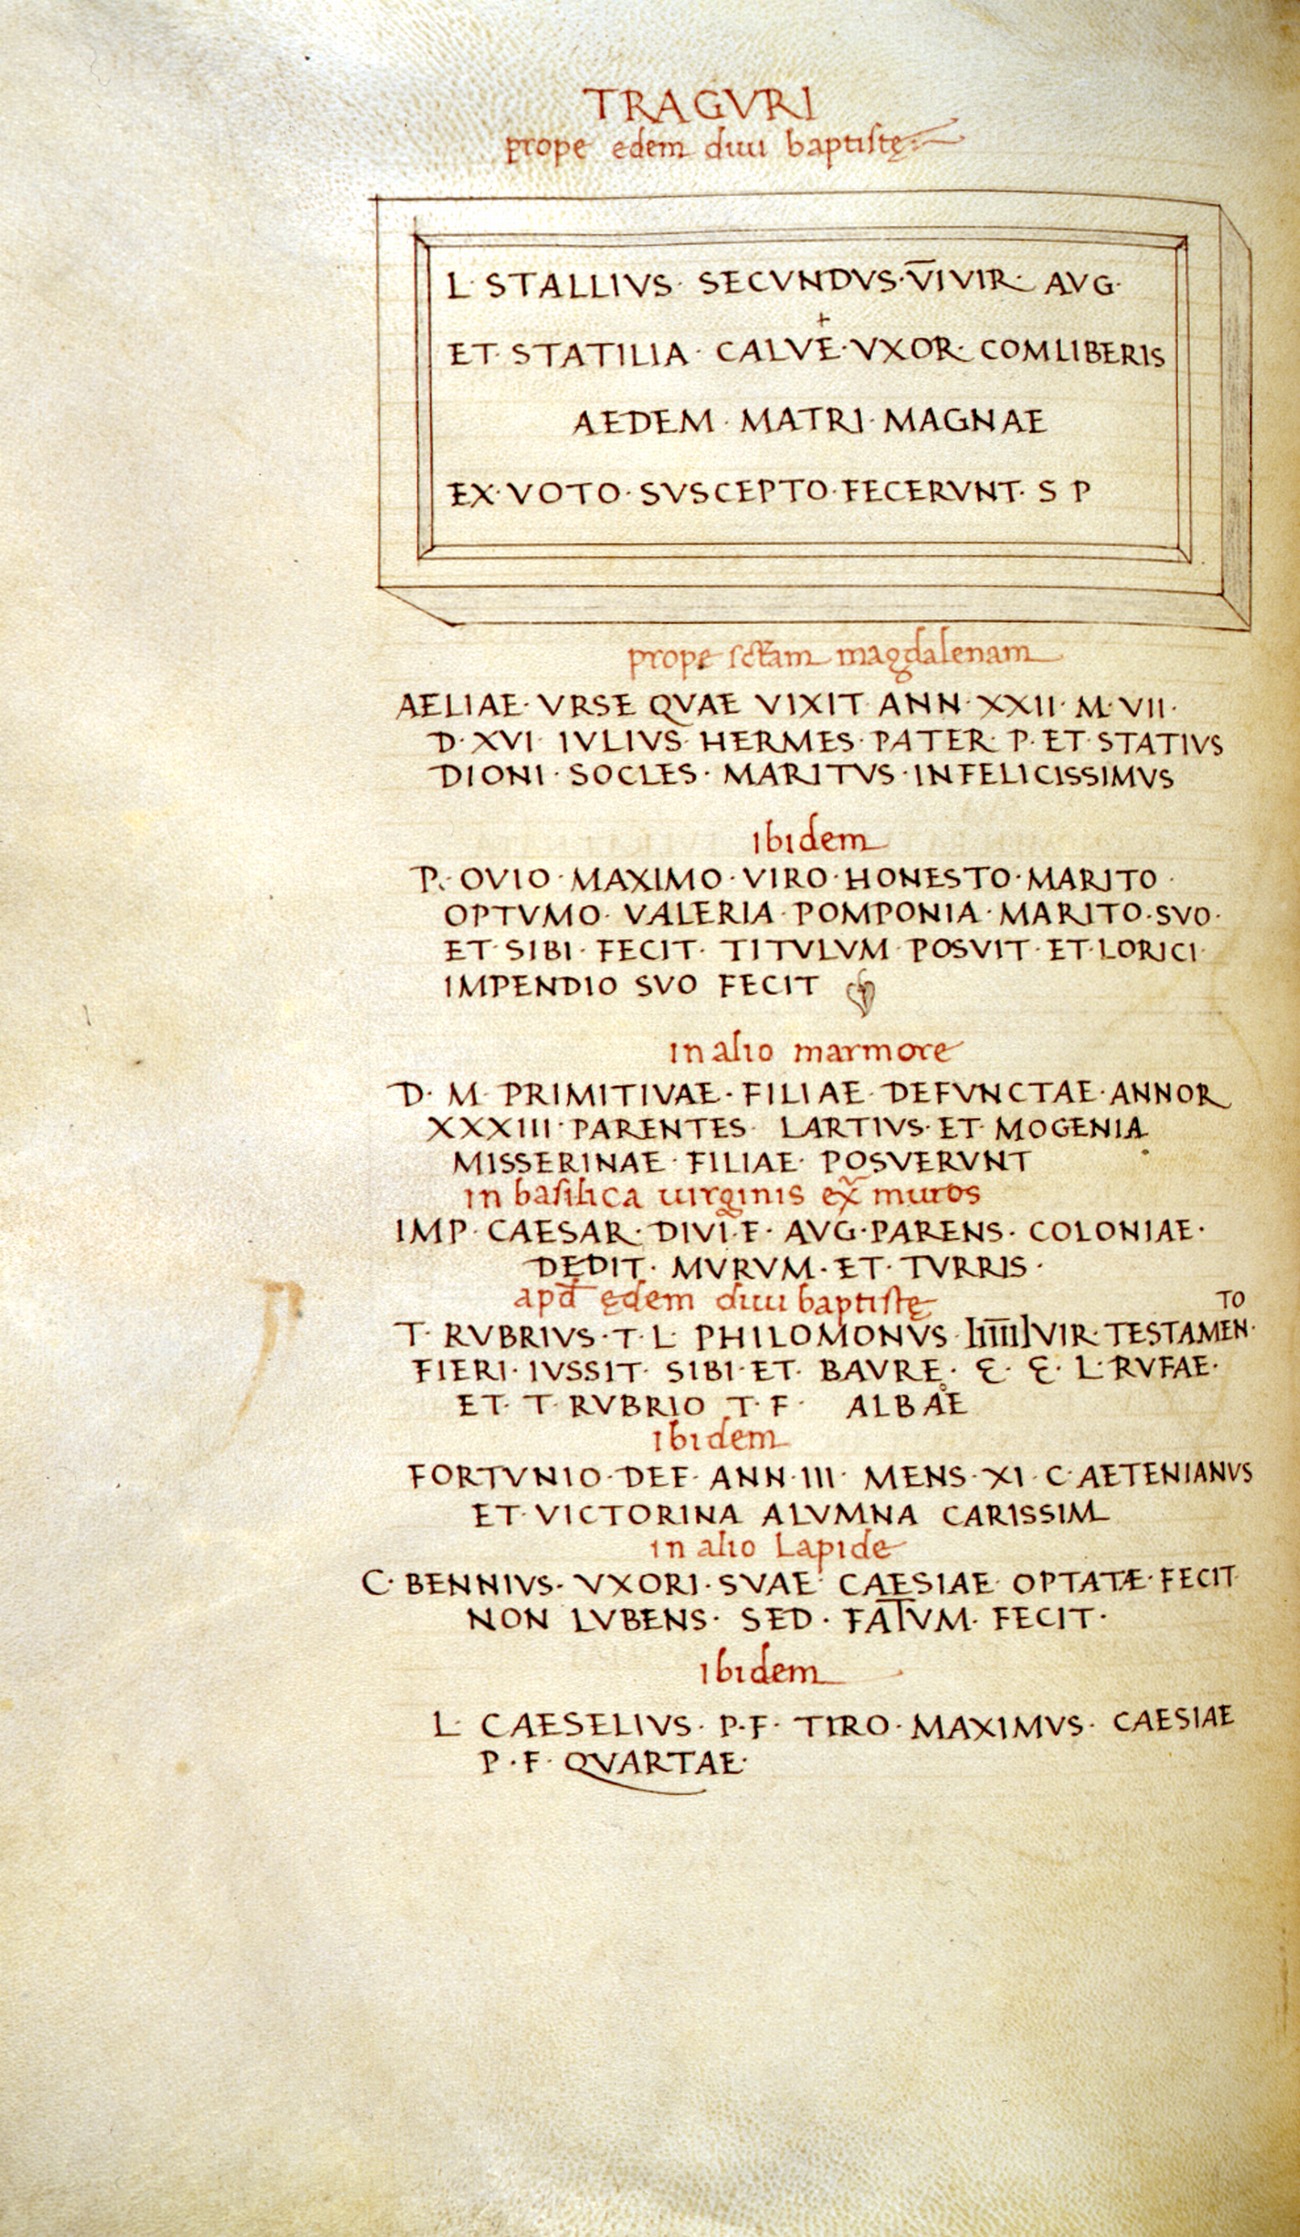 TRAGVRI
prope edem diui baptistę
L· STALLIVS· SECVNDVS·V̅IVIR· AVG·
ET· STATILIA· CALVE·VXOR· COMLIBERIS
AEDEM· MATRI·MAGNAE
EX·VOTO·SVSCEPTO·FECERVNT· S P
prope sctam magdalenam
AELIAE·VRSE QVAE VIXIT ANN·XXII·M·VII·
D·XVI IVLIVS HERMES·PATER P·ET·STATIVS
DIONI·SOCLES·MARITVS·INFELICISSIMVS
ibidem
P· OVIO·MAXIMO·VIRO·HONESTO·MARITO·
OPTVMO·VALERIA·POMPONIA·MARITO·SVO·
ET·SIBI·FECIT·TITVLVM·POSVIT·ET·LORICI·
IMPENDIO SVO FECIT
in alio marmore
D·M·PRIMITIVAE·FILIAE·DEFVNCTAE·ANNOR
XXXIII·PARENTES· LARTIVS·ET·MOGENIA
MISSERINAE·FILIAE·POSVERVNT
in basilica uirginis ex̃ muros
IMP·CAESAR·DIVI·F·AVG·PARENS·COLONIAE·
DEDIT·MVRVM·ET·TVRRIS·
apđ ędem diui baptistę
TO
T·RVBRIVS·T·L·PHILOMONVS VIR·TESTAMEN·
FIERI·IVSSIT·SIBI·ET·BAVRE· Ɛ· Ɛ· L·RVFAE·
ET·T·RVBRIO T·F· ALBAE
ibidem
FORTVNIO·DEF·ANN·III·MENS·XI·C·AETENIANVS
ET·VICTORINA ALVMNA CARISSIM
in alio Lapide
C·BENNIVS·VXORI·SVAE CAESIAE OPTATÆ·FECIT
NON LVBENS·SED·FATVM·FECIT·
ibidem
L· CAESELIVS·P·F·TIRO·MAXIMVS·CAESIAE
P·F·QVARTAE·